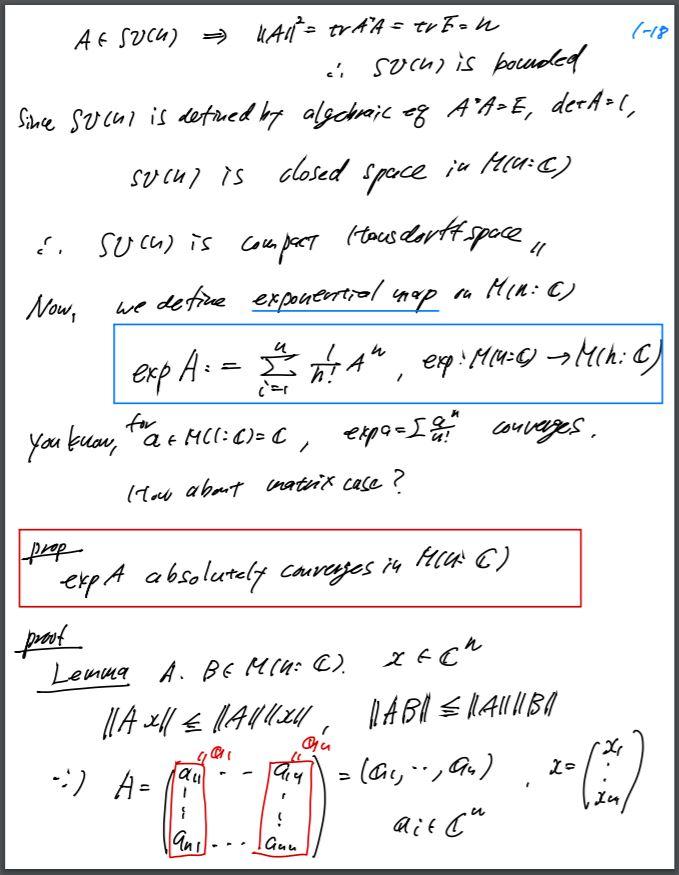 A ∈ SU(n) ⇒ ||A||² = tr A*A = tr E = n
1-18
∴ SU(n) is bounded
Since SU(n) is defined by algebraic eq A*A=E, det A=1,
SU(n) is closed space in M(n:ℂ)
∴ SU(n) is compact Hausdorff space〃
Now, we define exponential map on M(n:ℂ)
exp A := Σ_{i=1}^{n} 1/n! Aⁿ, exp: M(n:ℂ) → M(n:ℂ)
You know, for a ∈ M(1:ℂ)=ℂ, exp a = Σ aⁿ/n! converges.
How about matrix case?
prop
exp A absolutely converges in M(n:ℂ)
proof
Lemma A. B ∈ M(n:ℂ). x ∈ ℂⁿ
||Ax|| ≤ ||A|| ||x||, ||AB|| ≤ ||A|| ||B||
〃a₁ 〃aₙ
∵) A = (a₁₁ ‑ ‑ a₁ₙ ⋮ ⋮ aₙ₁ ... aₙₙ) = (a₁, ‥, aₙ) , x = (x₁ ⋮ xₙ)
aᵢ ∈ ℂⁿ